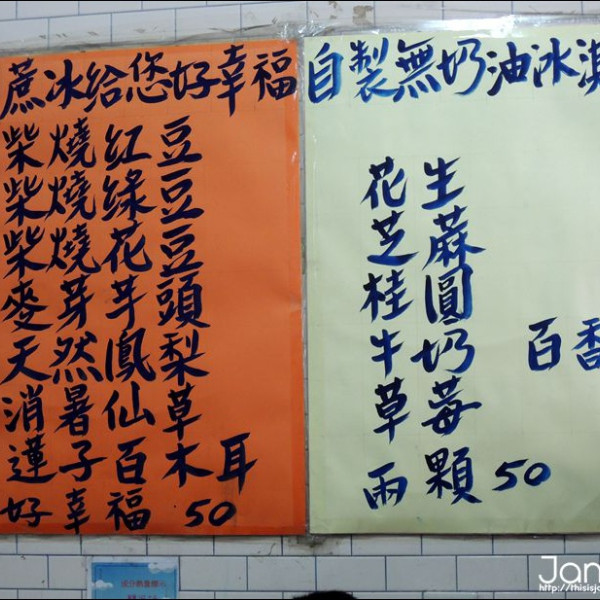 蔗冰給您好幸福
柴燒紅豆
柴燒綠豆
柴燒花豆
麥芽芋頭
天然鳳梨
消暑仙草
蓮子百木耳
好幸福 50
自製無奶油冰淇
花生
芝蔴
桂圓
牛奶 百香
草莓
兩顆50
Jan
http://thisisj